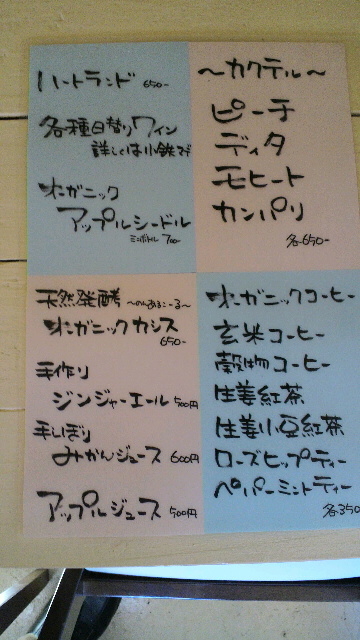 ハートランド 650-
各種日替りワイン
詳しくは小鉄まで
オーガニック
アップルシードル
ミニボトル 700-
～カクテル～
ピーチ
ディタ
モヒート
カンパリ
各650-
天然発酵 ～のんあるこーる～
オーガニックカシス
650-
手作り
ジンジャーエール 500円
手しぼり
みかんジュース 600円
アップルジュース 500円
オーガニックコーヒー
玄米コーヒー
穀物コーヒー
生姜紅茶
生姜小豆紅茶
ローズヒップティー
ペパーミントティー
各350